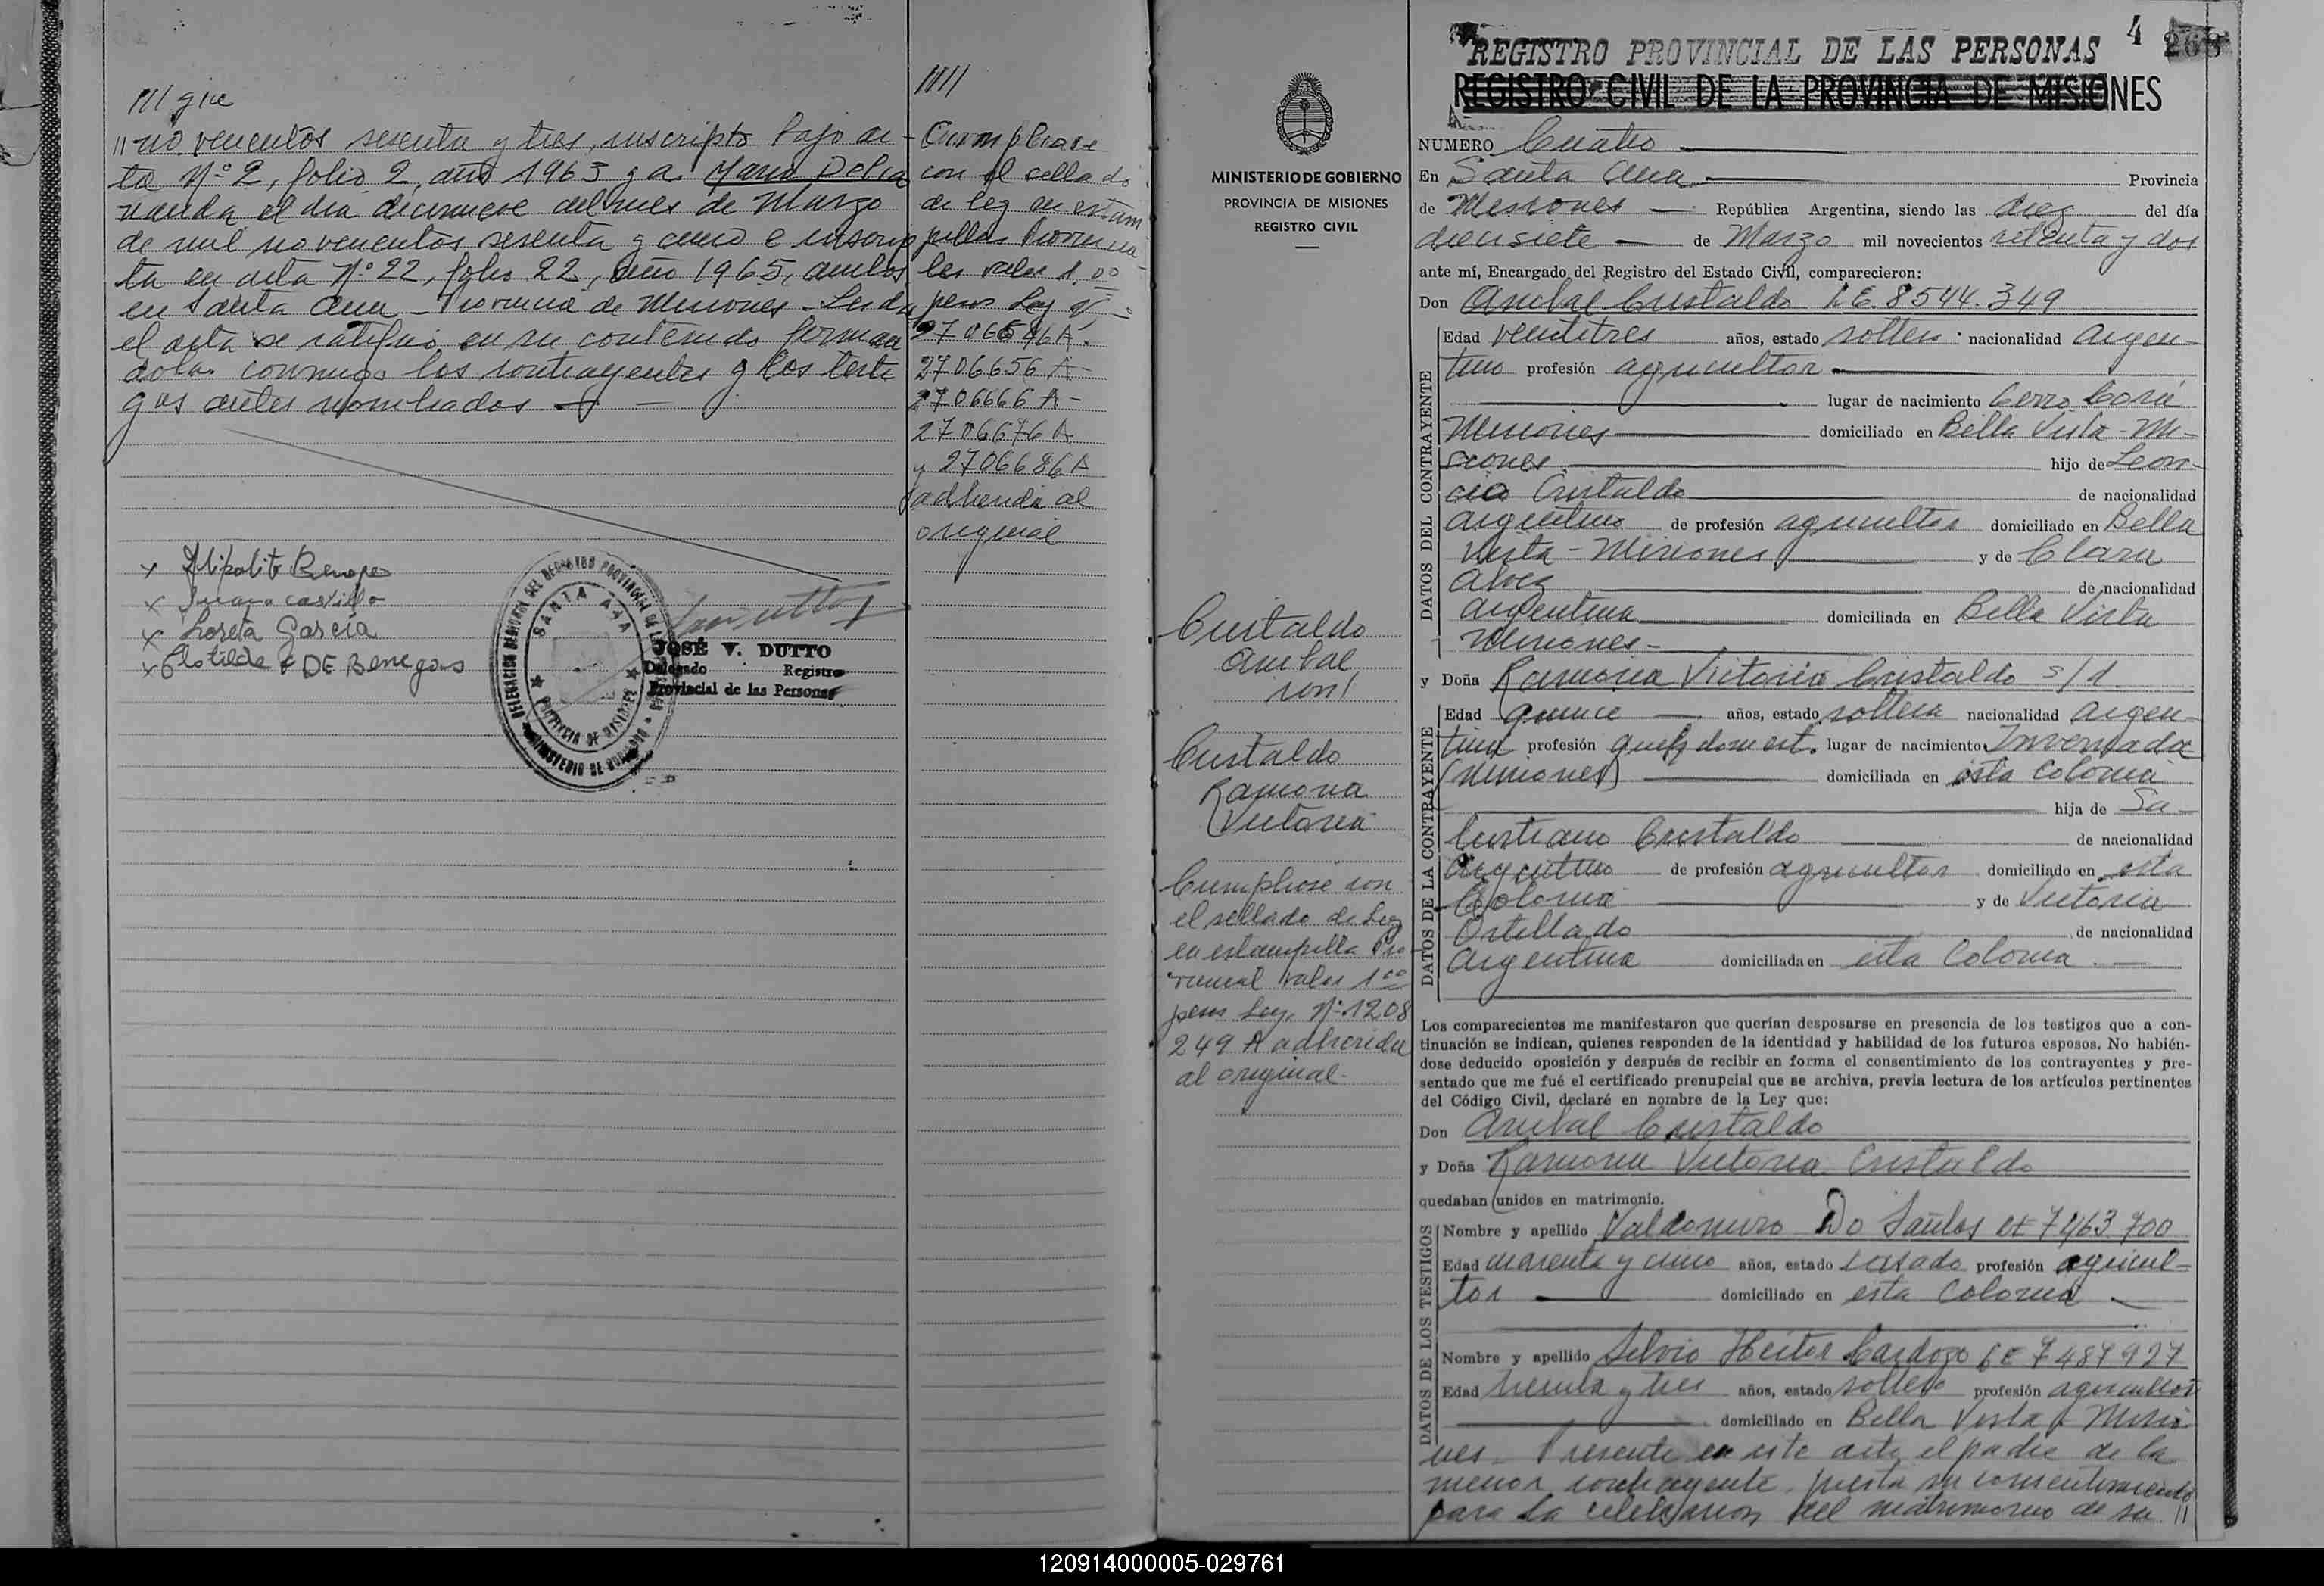 //// que
// no vecientos sesenta y tres, inscripto bajo ac-
ta Nº 2, folio 2, año 1963 y a Maria Delia
nacida el dia diecinueve del mes de Marzo
de mil novecientos sesenta y cinco e inscrip
ta en acta Nº 22, folio 22, año 1965, ambos
en Santa Ana - Provincia de Misiones - Leida
el acta se ratifico en su contenido firman
dola conmigo los contrayentes y los testi
gos antes nombrados
x Hipolito Benega
x Juana castillo
x Loreta Garcia
x Clotilde DE Benegas
SANTA ANA
PROVINCIA DE MISIONES
JOSÉ V. DUTTO
Delegado Registro
Provincial de las Personas
/////
Cumplase
con el sellado
de ley en estam
pillas Provincia
les valor 1,00
pesos Ley Nº
2706656 A -
2706666 A -
2706676 A
y 2706686 A
adherida al
original
4
REGISTRO PROVINCIAL DE LAS PERSONAS
REGISTRO CIVIL DE LA PROVINCIA DE MISIONES
MINISTERIO DE GOBIERNO
PROVINCIA DE MISIONES
REGISTRO CIVIL
Cristaldo
Anibal
con/
Cristaldo
Ramona
Victoria
Cumplase con
el sellado de Ley
en estampilla Pro
vincial valor 1,00
pesos Ley Nº 1208
249 A adherida
al original -
NUMERO Cuatro
En Santa Ana Provincia
de Misiones República Argentina, siendo las diez del día
diecisiete de Marzo mil novecientos setenta y dos
ante mí, Encargado del Registro del Estado Civil, comparecieron:
Don Anibal Cristaldo L.E. 8544.349
DATOS DEL CONTRAYENTE
Edad veintitres años, estado soltero nacionalidad argen-
tino profesión agricultor
lugar de nacimiento Cerro Corá
Misiones domiciliado en Bella Vista - Mi-
siones hijo de Leon-
cio Cristaldo de nacionalidad
argentino de profesión agricultor domiciliado en Bella
Vista - Misiones y de Clara
Alvez de nacionalidad
argentina domiciliada en Bella Vista
Misiones -
y Doña Ramona Victoria Cristaldo s/d.
DATOS DE LA CONTRAYENTE
Edad quince años, estado soltera nacionalidad argen-
tina profesión queh. domest. lugar de nacimiento Invernada
(Misiones) domiciliada en esta colonia
hija de Sa-
lustiano Cristaldo de nacionalidad
argentino de profesión agricultor domiciliado en esta
Colonia y de Victoria
Ortellado de nacionalidad
argentina domiciliada en esta Colonia. -
Los comparecientes me manifestaron que querían desposarse en presencia de los testigos que a con-
tinuación se indican, quienes responden de la identidad y habilidad de los futuros esposos. No habién-
dose deducido oposición y después de recibir en forma el consentimiento de los contrayentes y pre-
sentado que me fué el certificado prenupcial que se archiva, previa lectura de los artículos pertinentes
del Código Civil, declaré en nombre de la Ley que:
Don Anibal Cristaldo
y Doña Ramona Victoria Cristaldo
quedaban unidos en matrimonio.
DATOS DE LOS TESTIGOS
Nombre y apellido Valdomiro Do Santos LE 7463700
Edad cuarenta y cinco años, estado casado profesión agricul-
tor domiciliado en esta Colonia
Nombre y apellido Silvio Heitor Cardozo LE 7489927
Edad treinta y tres años, estado soltero profesión agricultor
domiciliado en Bella Vista, Misio
nes - Presente en este acto el padre de la
menor contrayente, presta su consentimiento
para la celebracion del matrimonio de su //
120914000005-029761